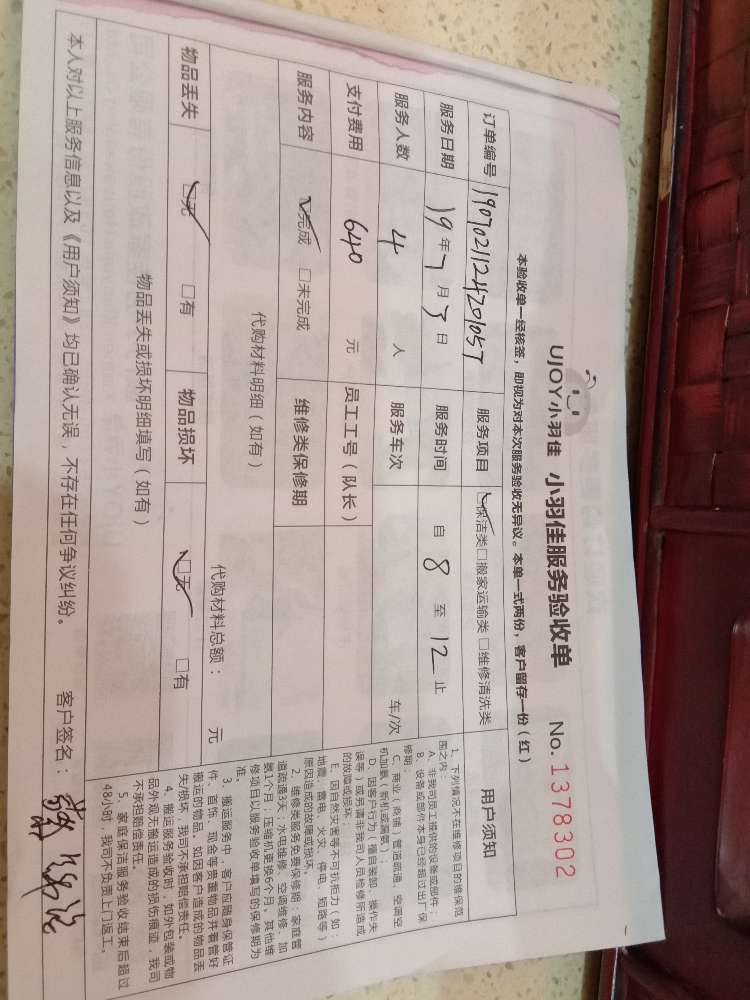 UJOY小羽佳 小羽佳服务验收单 No.1378302
本验收单一经核签，即视为对本次服务验收无异议。本单一式两份，客户留存一份（红）
订单编号 190702112420105T 服务项目 ☑保洁类□搬家运输类□维修清洗类
服务日期 19年7月3日 服务时间 自8至12止
服务人数 4人 服务车次 车/次
支付费用 640元 员工工号（队长）
服务内容 ☑完成 □未完成 维修类保修期
代购材料明细（如有）
代购材料总额： 元
物品丢失 ☑无 □有 物品损坏 ☑无 □有
物品丢失或损坏明细填写（如有）
本人对以上服务信息以及《用户须知》均已确认无误，不存在任何争议纠纷。 客户签名：
用户须知
1、下列情况不在维修项目的维保范
围之内：
A、非我司员工提供的设备或部件；
B、设备或部件本身已经超过出厂保
修期；
C、商业（商铺）管道疏通、空调空
机加氟（新机或漏氟）；
D、因客户行为（擅自装卸、操作失
误等）或另请非我司人员检修所造成
的故障或损坏；
E、因自然灾害等不可抗拒力（如：
地震、雷电、火灾、停电、短路等）
原因造成的故障或损坏。
2、维修类服务免费保修期：家庭管
道疏通3天；水电维修、空调维修、加
氨1个月；压缩机更换6个月。其他维
修项目以服务验收单填写的保修期为
准。
3、搬运服务中，客户应随身保管证
件、首饰、现金等贵重物品并看管好
搬运的物品。如因客户造成的物品丢
失/损坏，我司不承担赔偿责任。
4、搬运服务验收时，如外包装或物
品外观无搬运造成的损伤痕迹，我司
不承担赔偿责任。
5、家庭保洁服务验收结束后超过
48小时，我司不负责上门返工。